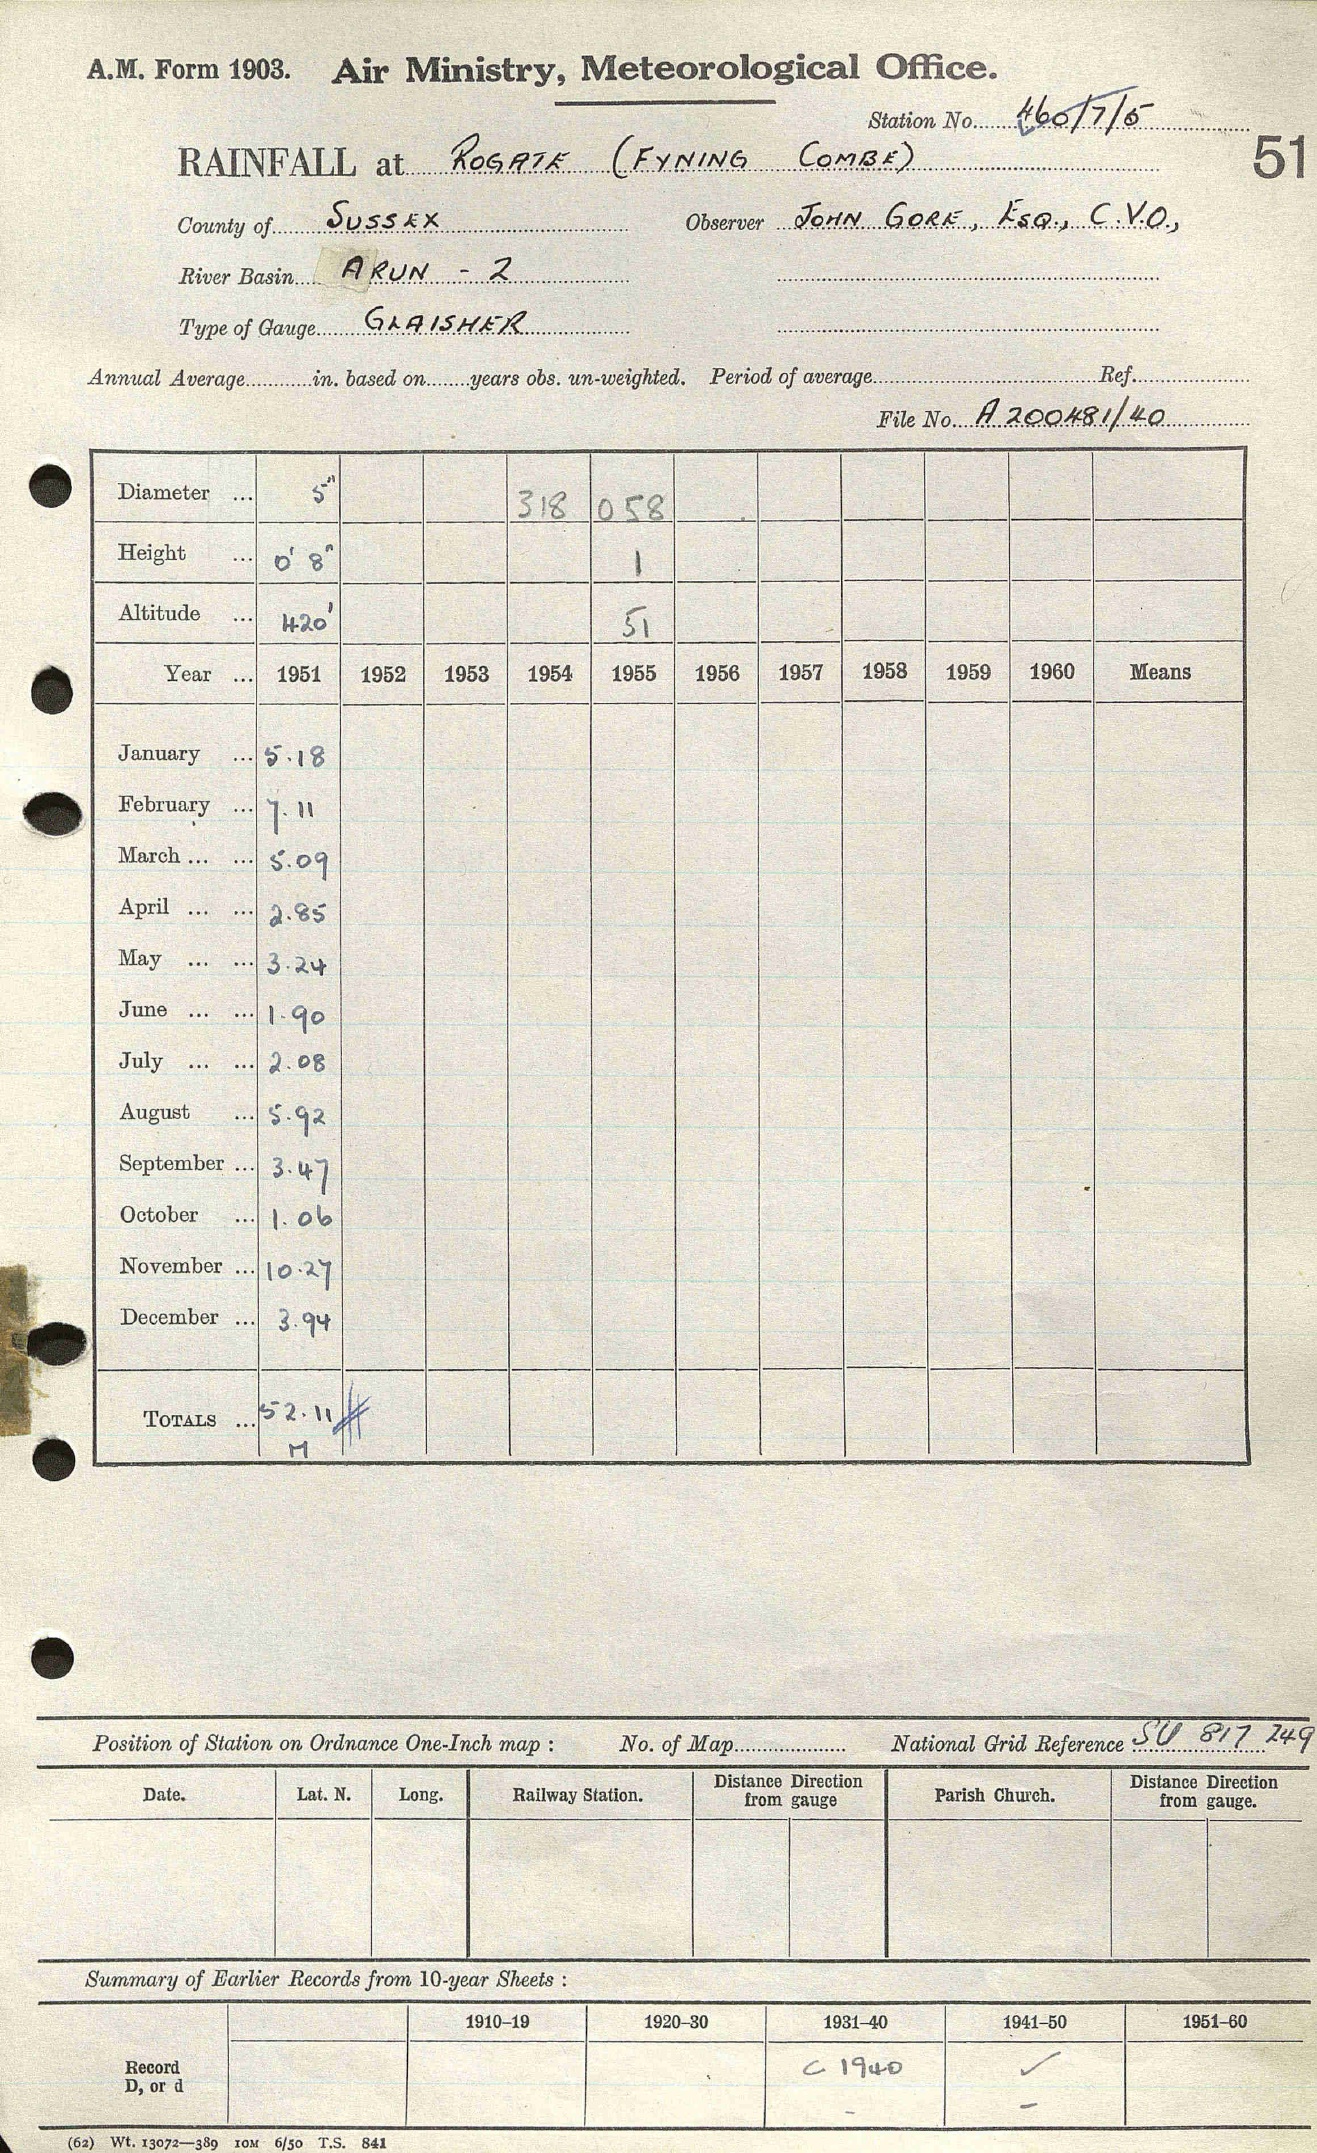 A.M. Form 1903. Air Ministry, Meteorological Office.
Station No. 460/7/5
RAINFALL at ROGATE (FYNING COMBE)
51
County of SUSSEX Observer JOHN GORE, ESQ., C.V.O.,
River Basin ARUN - 2
Type of Gauge GLAISHER
Annual Average in. based on years obs. un-weighted. Period of average Ref.
File No. A 200481/40
Diameter ... 5" 318 058
Height ... 0' 8" 1
Altitude ... 420' 51
Year ... 1951 1952 1953 1954 1955 1956 1957 1958 1959 1960 Means
January ... 5.18
February ... 7.11
March ... ... 5.09
April ... ... 2.85
May ... ... 3.24
June ... ... 1.90
July ... ... 2.08
August ... 5.92
September ... 3.47
October ... 1.06
November ... 10.27
December ... 3.94
TOTALS ... 52.11
M
Position of Station on Ordnance One-Inch map : No. of Map National Grid Reference SU 817 249
Date. Lat. N. Long. Railway Station. Distance Direction from gauge Parish Church. Distance Direction from gauge.
Summary of Earlier Records from 10-year Sheets :
1910–19 1920–30 1931–40 1941–50 1951–60
Record C 1940 ✓
D, or d - -
(62) Wt. 13072—389 10M 6/50 T.S. 841